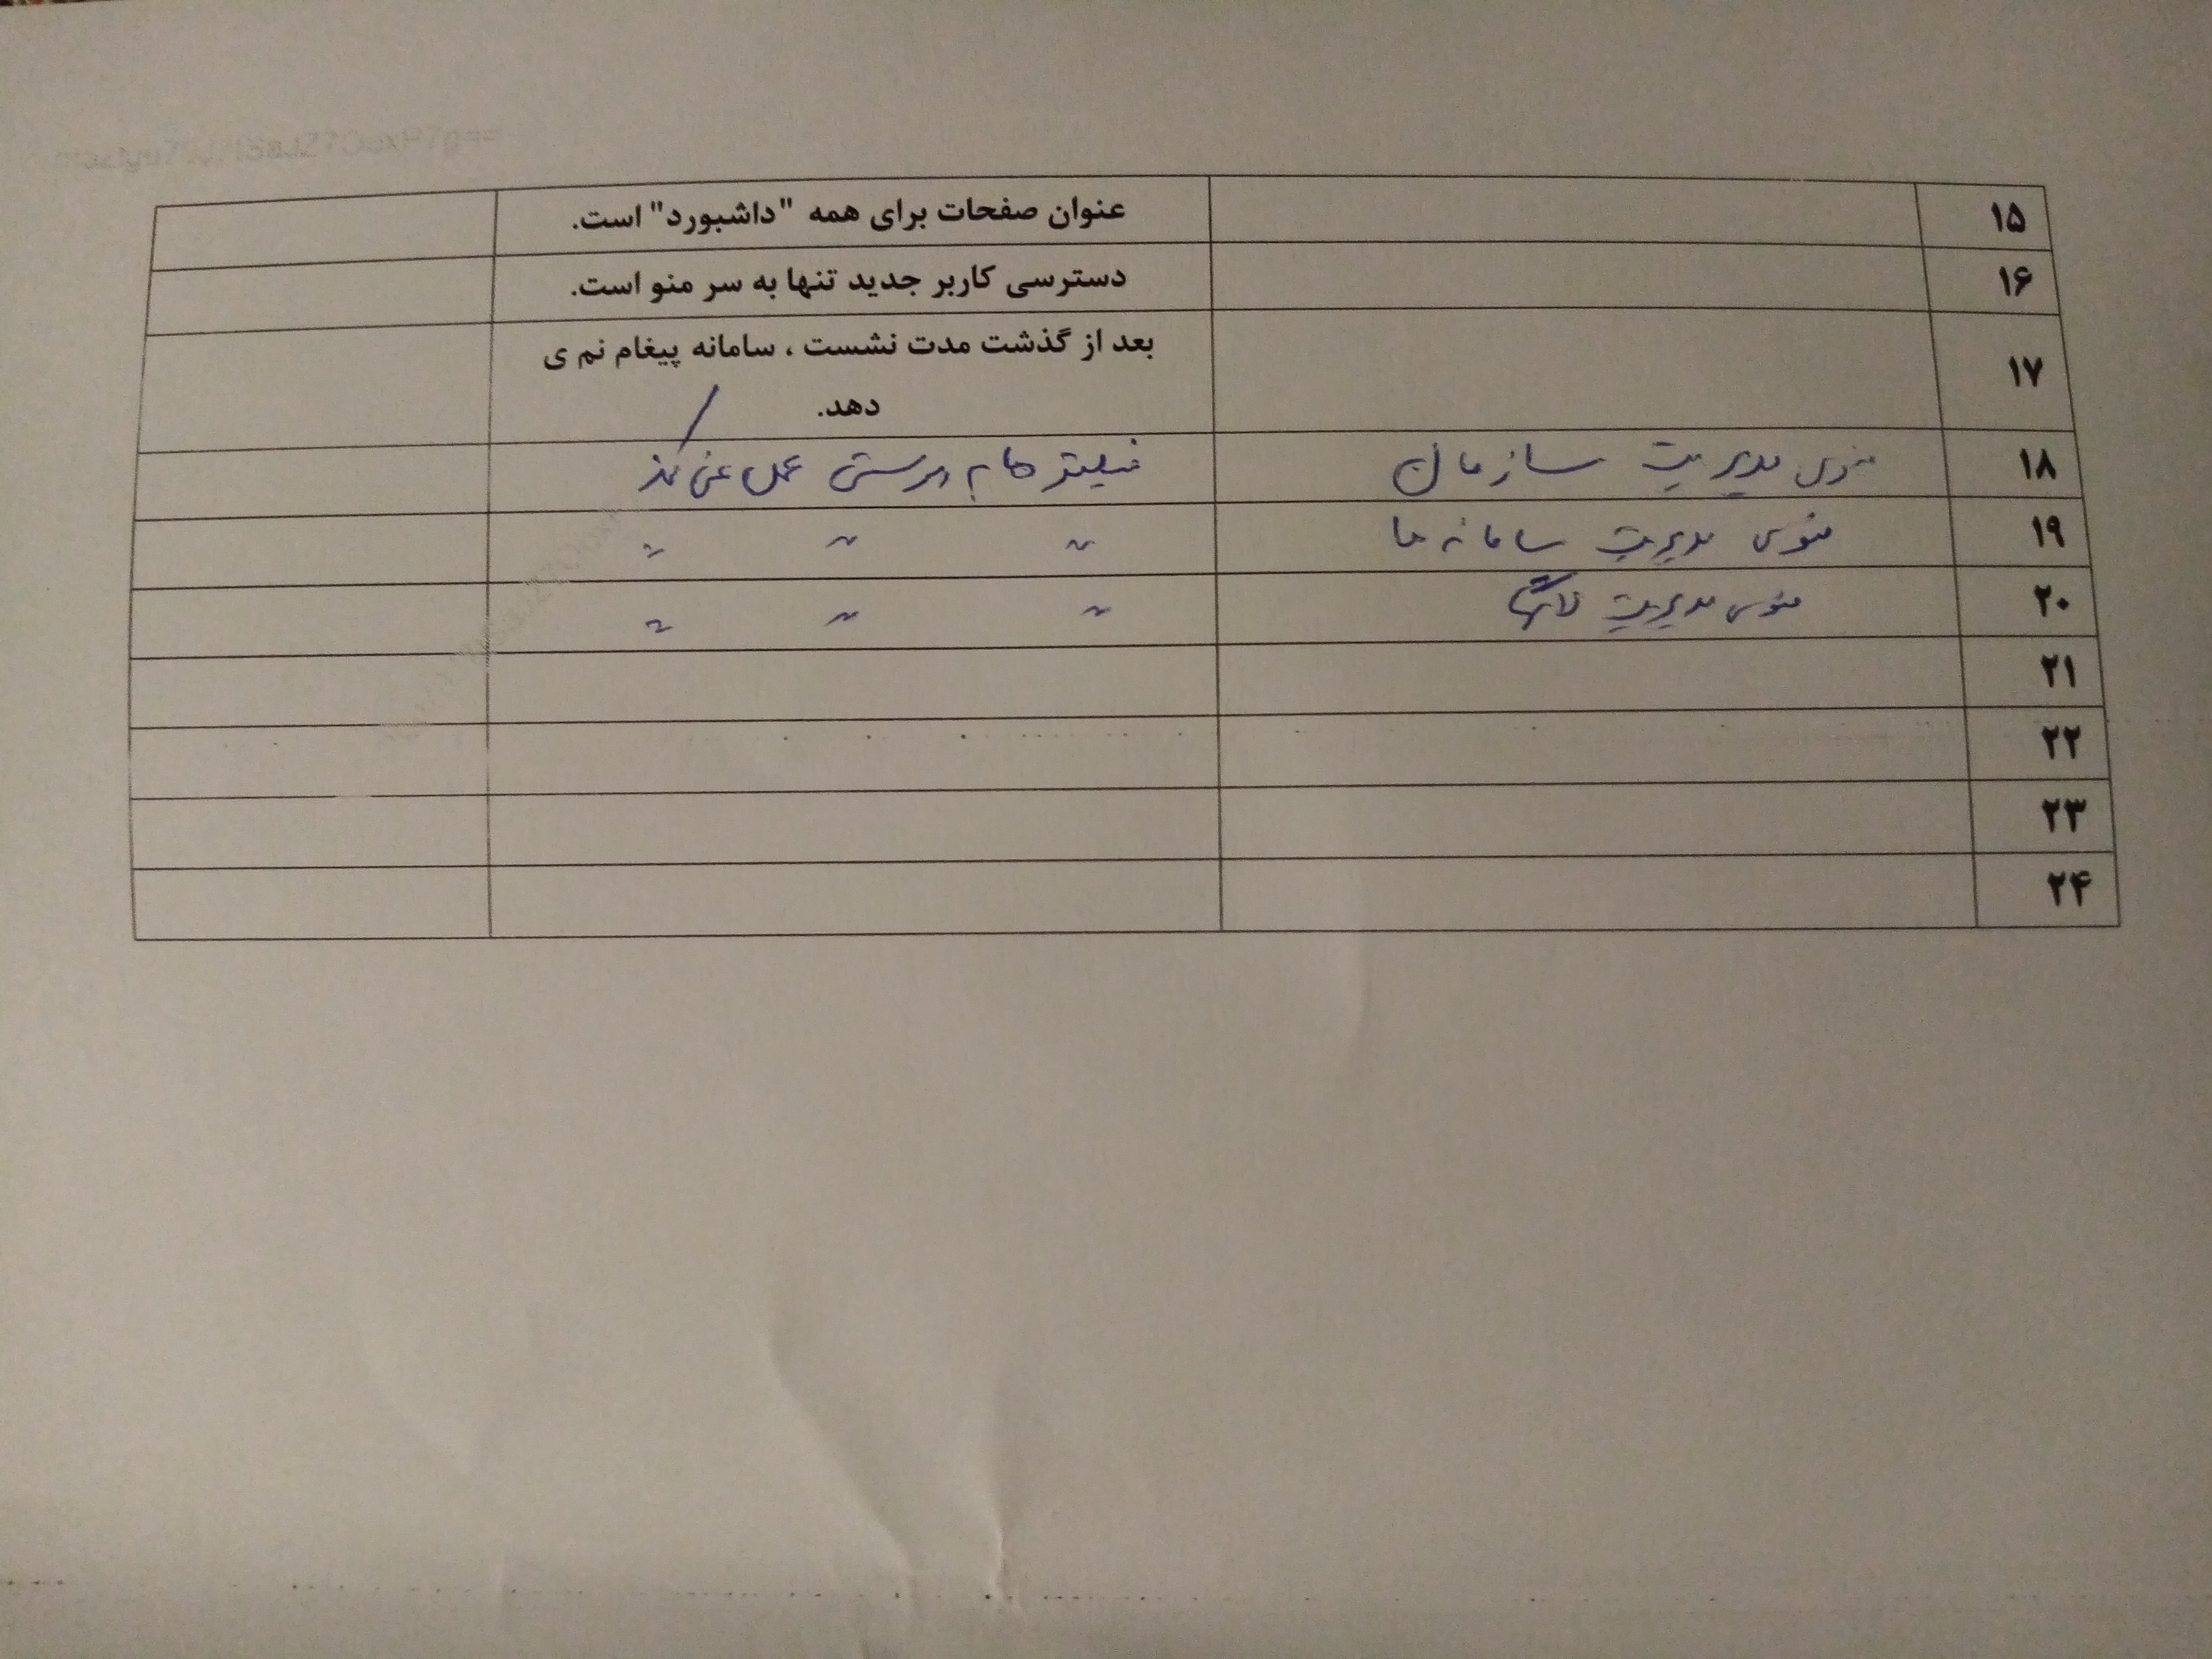 ۱۵ عنوان صفحات برای همه "داشبورد" است.
۱۶ دسترسی کاربر جدید تنها به سر منو است.
۱۷ بعد از گذشت مدت نشست ، سامانه پیغام نم ی
دهد.
۱۸ منوی مدیریت سازمان فیلترها به درستی عمل نمی کند
۱۹ منوی مدیریت سامانه ها " " "
۲۰ منوی مدیریت " " "
۲۱
۲۲
۲۳
۲۴